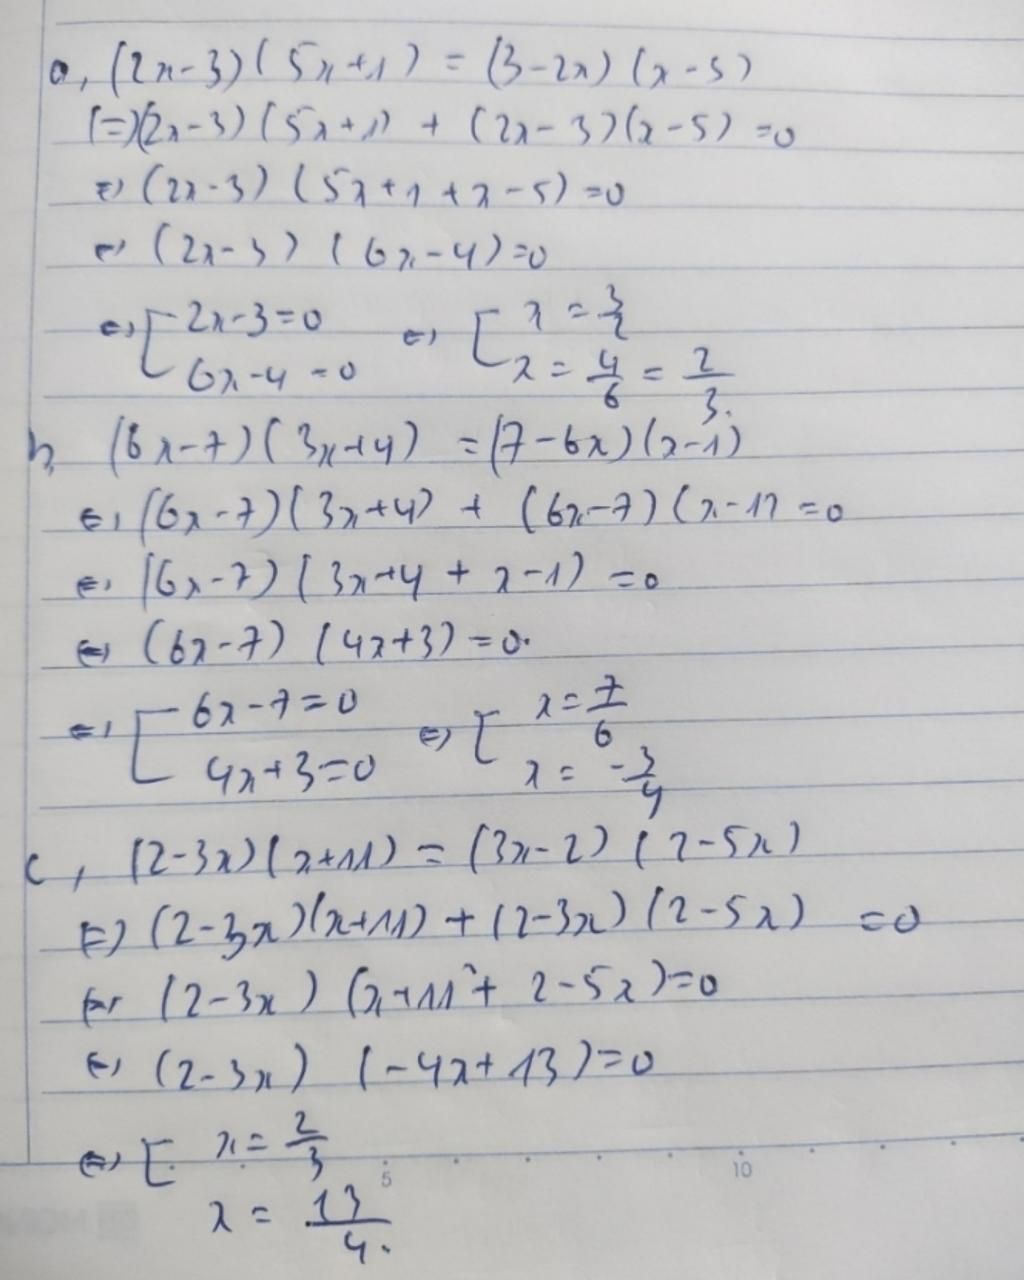 a, (2x-3)(5x+1) = (3-2x)(x-5)
(=)(2x-3)(5x+1) + (2x-3)(x-5) = 0
⇔ (2x-3)(5x+1+x-5) = 0
⇔ (2x-3)(6x-4) = 0
⇔ [ 2x-3 = 0 ⇔ [ x = 3/2
6x-4 = 0 x = 4/6 = 2/3.
b, (6x-7)(3x+4) = (7-6x)(x-1)
⇔ (6x-7)(3x+4) + (6x-7)(x-1) = 0
⇔ (6x-7)(3x+4 + x-1) = 0
⇔ (6x-7)(4x+3) = 0.
⇔ [ 6x-7 = 0 ⇔ [ x = 7/6
4x+3 = 0 x = -3/4
c, (2-3x)(x+11) = (3x-2)(2-5x)
⇔ (2-3x)(x+11) + (2-3x)(2-5x) = 0
⇔ (2-3x)(x+11 + 2-5x) = 0
⇔ (2-3x)(-4x+13) = 0
⇔ [ x = 2/3
x = 13/4.
5 10